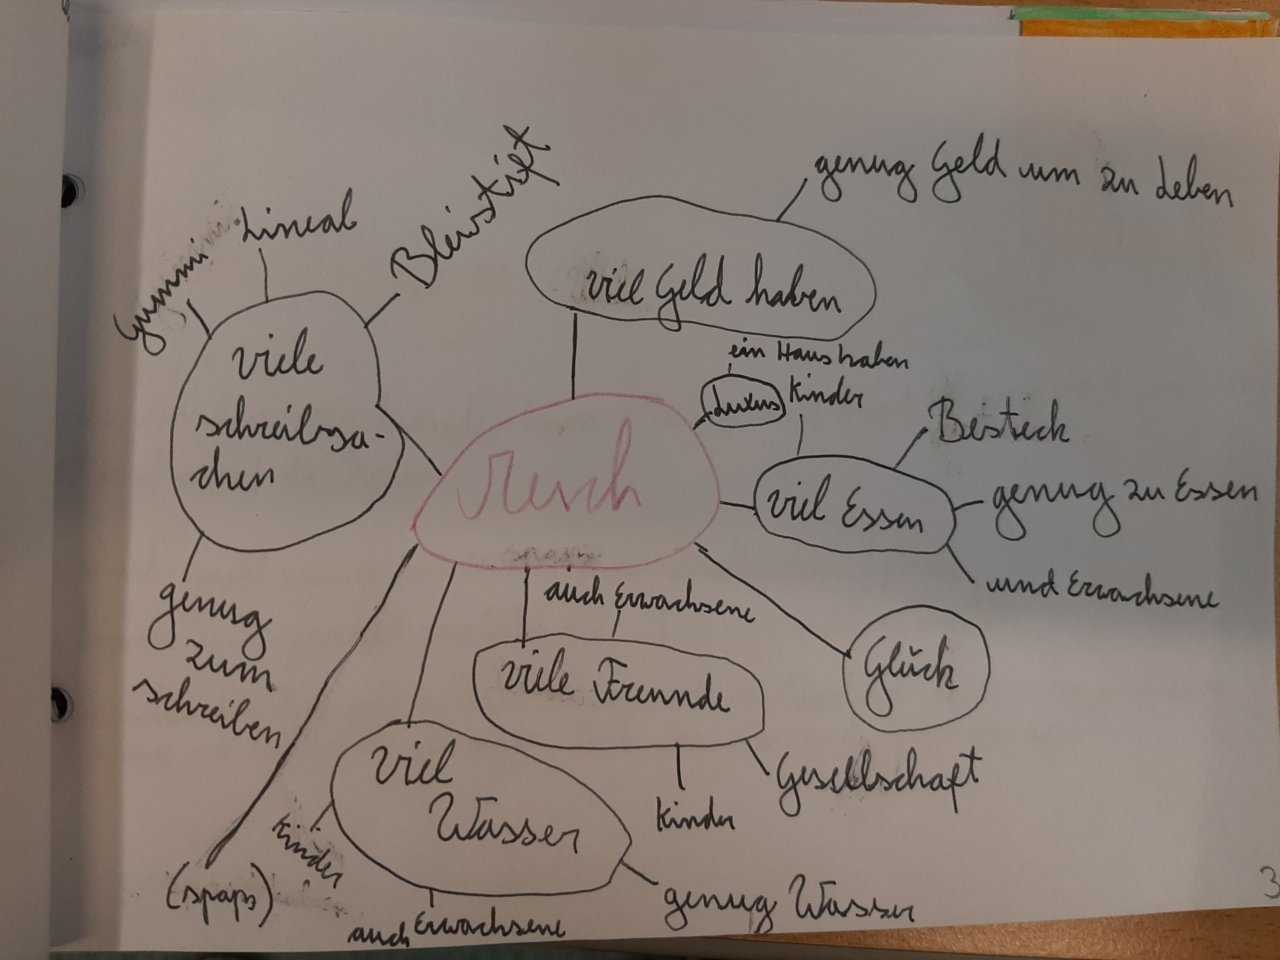 genug Geld um zu Leben
Bleistift
Lineal
Gummi
viel Geld haben
viele
schreibsa-
chen
ein Haus haben
Luxus
Kinder
Besteck
genug zu Essen
viel Essen
und Erwachsene
genug
zum
schreiben
auch Erwachsene
viele Freunde
Glück
Gesellschaft
Kinder
viel
Wasser
Kinder
(spaps)
genug Wasser
auch Erwachsene
3